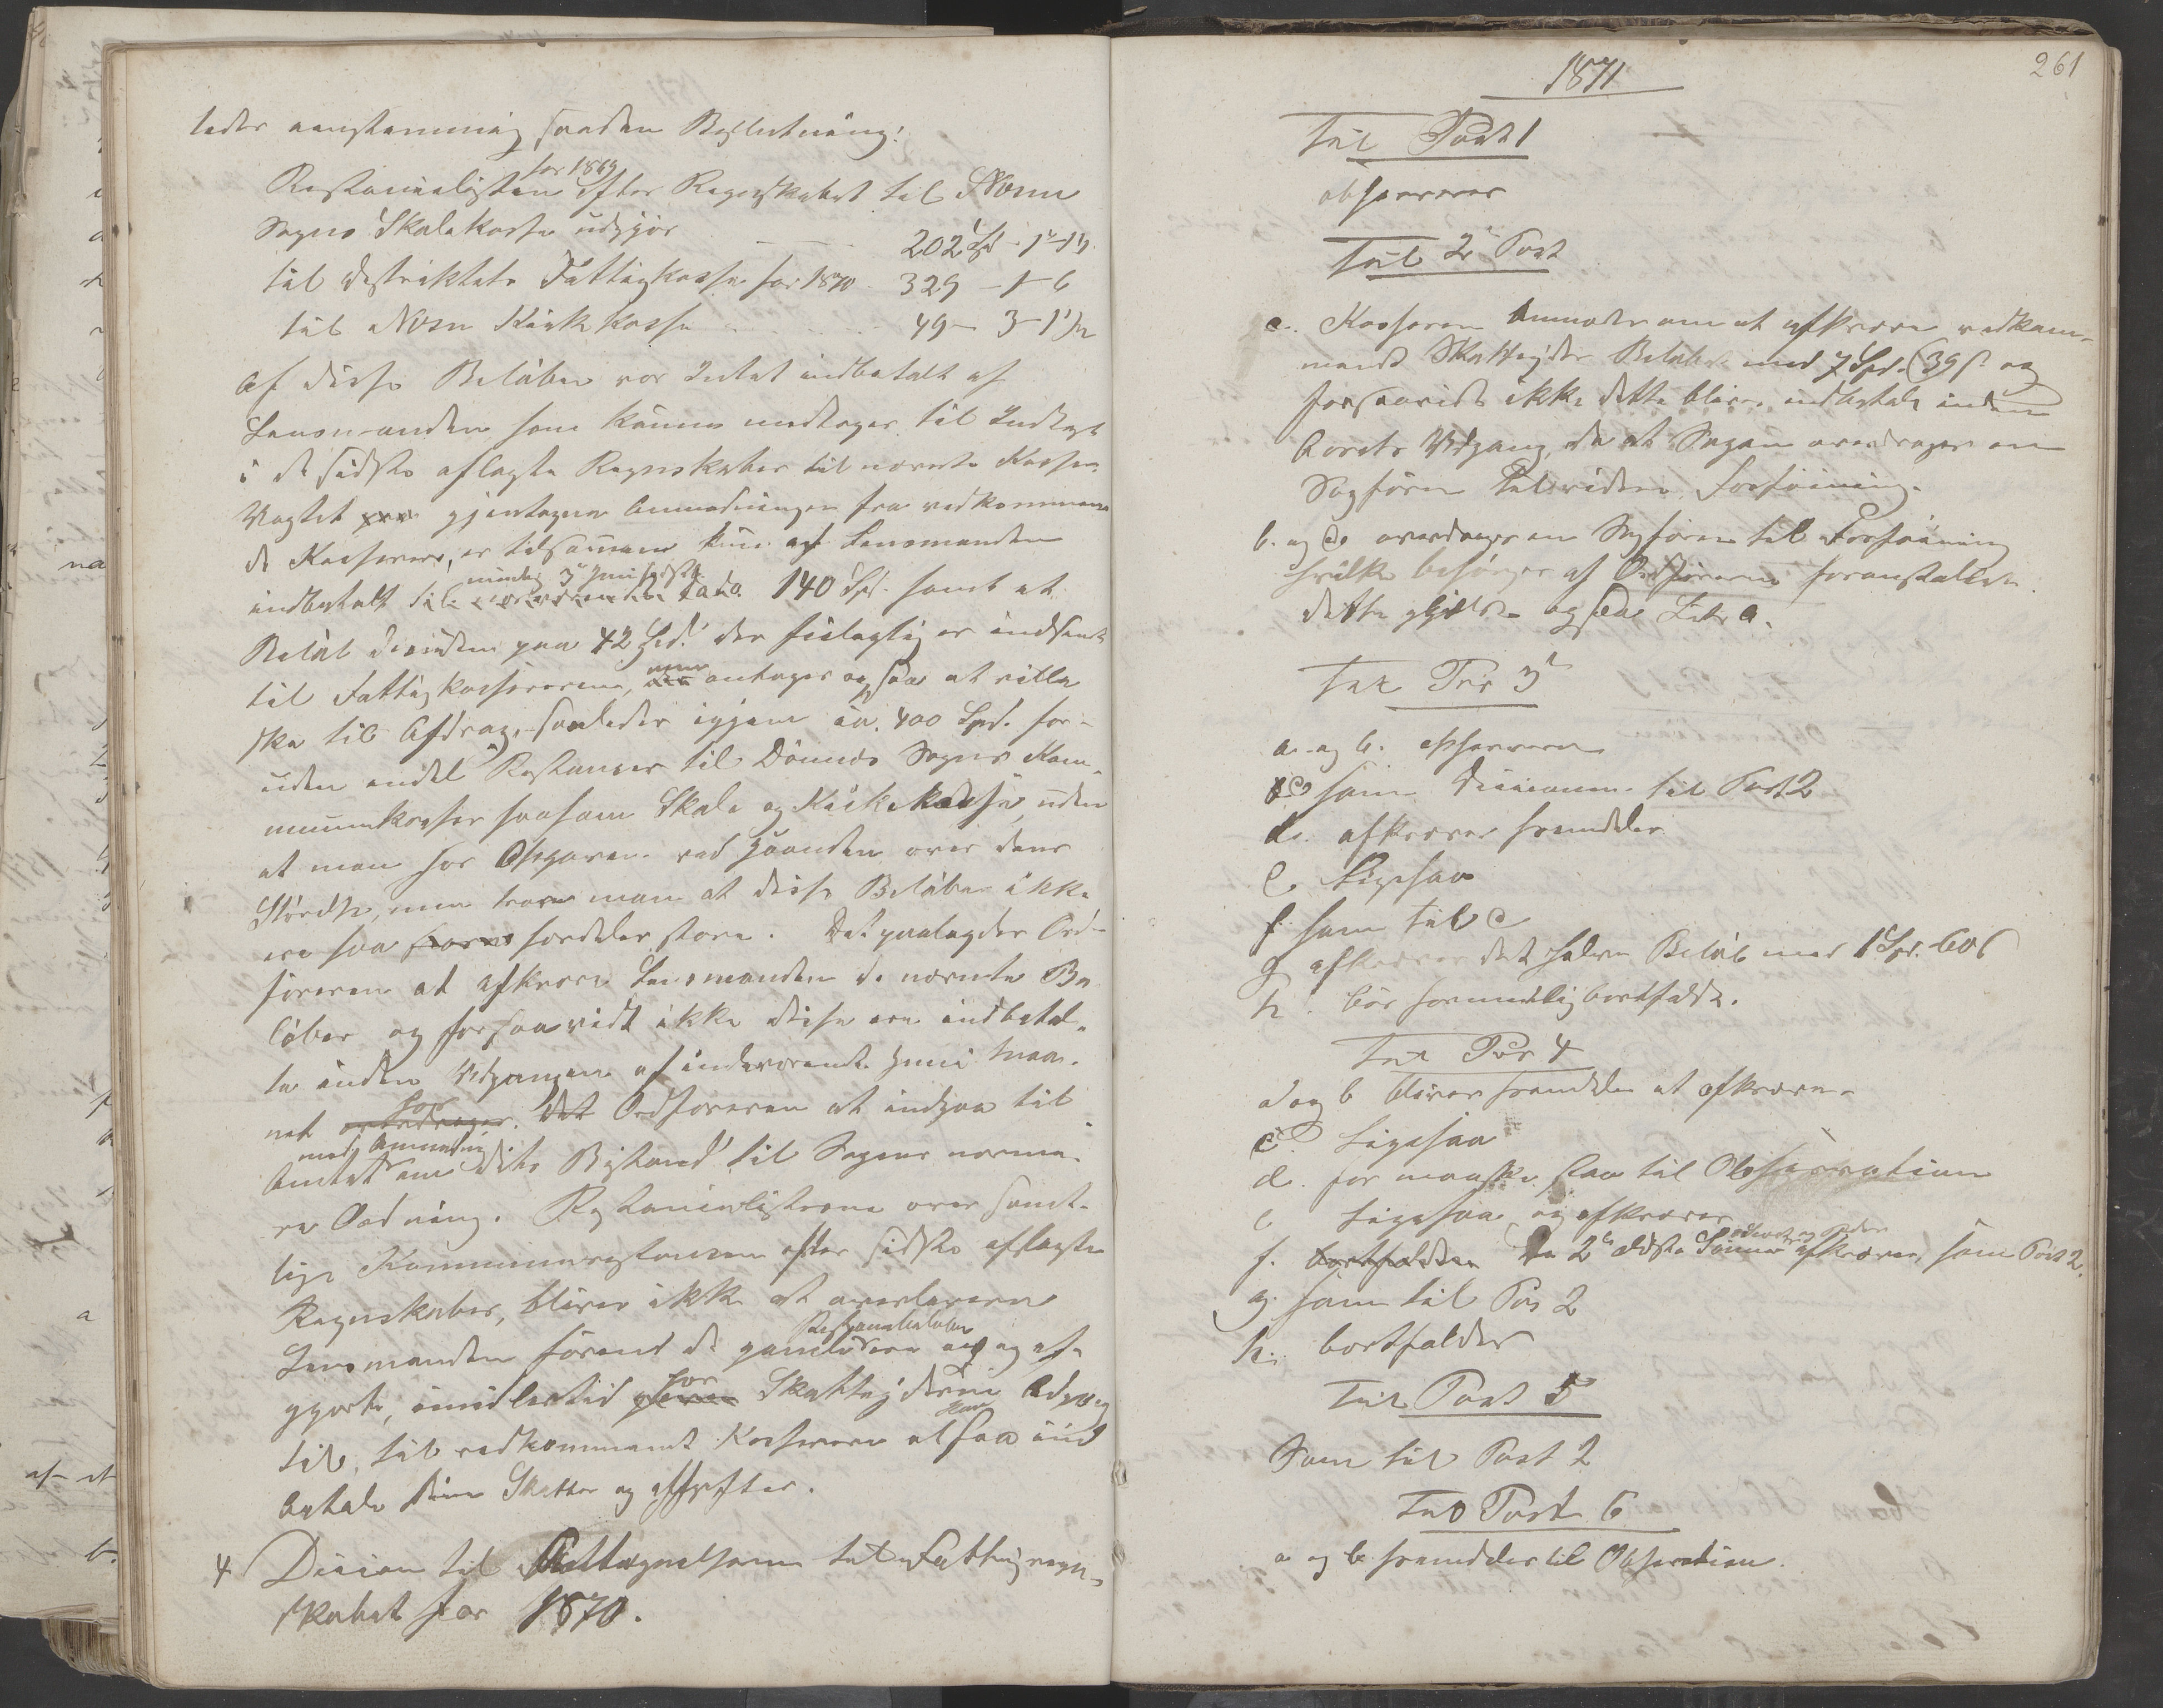 ledes eenstemmig saadan Beslutning:
Restanselisten for 1869 efter Regnskabet til Næsne
Sogns Skolekasse udgjør 202 Spd - 1 - 19
til Distriktets Fattigkasse for 1870 329 - 1 - 6
til Næsne Kirkekasse 49 - 3 - 1 1/2
Af disse Beløber var Intet indbetalt af
Lensmanden som kunne medtages til Indtægt
i de sidste aflagte Regnskaber til nævnte Kasser.
Uagtet gjentagne Anmodninger fra vedkommen
de Kasserere, er tilsammen kun af Lensmanden
indbetalt 140 Spd. samt et
Beløb desuden paa 42 Spd. der skal være indsendt
til Fattigkassereren, antages ogsaa at ville
ske til Afdrag, saaledes igjen ca. 400 Spd. for-
uden endel Restancer til Dønnes Sogns Kom-
munekasser saasom Skole og Kirkekasse, uden
at man har Opgaven ved Haanden over dens
Størrelse, men troer man at disse Beløber ikke
ere saa særdeles store. Det paalægges Ord-
føreren at afkræve Lensmanden de nævnte Be
løber og forsaavidt ikke disse ere indbetal-
te inden Udgangen af indeværende Juni Maa-
ned har Ordføreren at indgaa til
Amtet med Anmodning om dets Bistand til Sagens nærme-
re Ordning. Restancelisterne over samt-
lige Kommunerestancer efter sidste aflagte
Regnskaber, bliver ikke at overlevere
Lensmanden førend de gamle Restancebeløber ere op og af-
gjorte, imidlertid har Skatteyderne Adgang
til, til vedkommende Kasserere at ind
betale sine Skatter og Afgifter.
4 Decision til Antegnelserne til Fattigregn-
skabet for 1870.
1871
261
Til Post 1
observeres
Til 2 Post
a. Kasseren anmodes om at afkræve vedkom-
mende Skatteyder Beløbet med 7 Spd. 39 s. og
forsaavidt ikke dette bliver indbetalt inden
Aarets Udgang, da at Sagen overdrages en
Sagfører til videre Forføining.
b. og c. overdrages en Sagfører til Forføining
hvilke besørges af Ordføreren foranstaltet.
dette gjælder ogsaa Litr a.
Til Pos 3
a. og b. observeres
c som Decisionen til Post 2
d. afkræves fremdeles
e. Ligesaa
f. som til c
g afkræves det halve Beløb med 1 Spd. 60 s
h. bør formentlig bortfalde.
Til Pos 4
a og b bliver fremdeles at afkræve
c. Ligesaa
d. faar maaske staa til Observation
e Ligesaa og afkræves
f. bortfalder De 2de ældste Sønner afkræves, som Post 2.
g. som til Pos 2
h. bortfalder
Til Post 5
Som til Post 2
Til Post 6
a og b fremdeles til Observation.